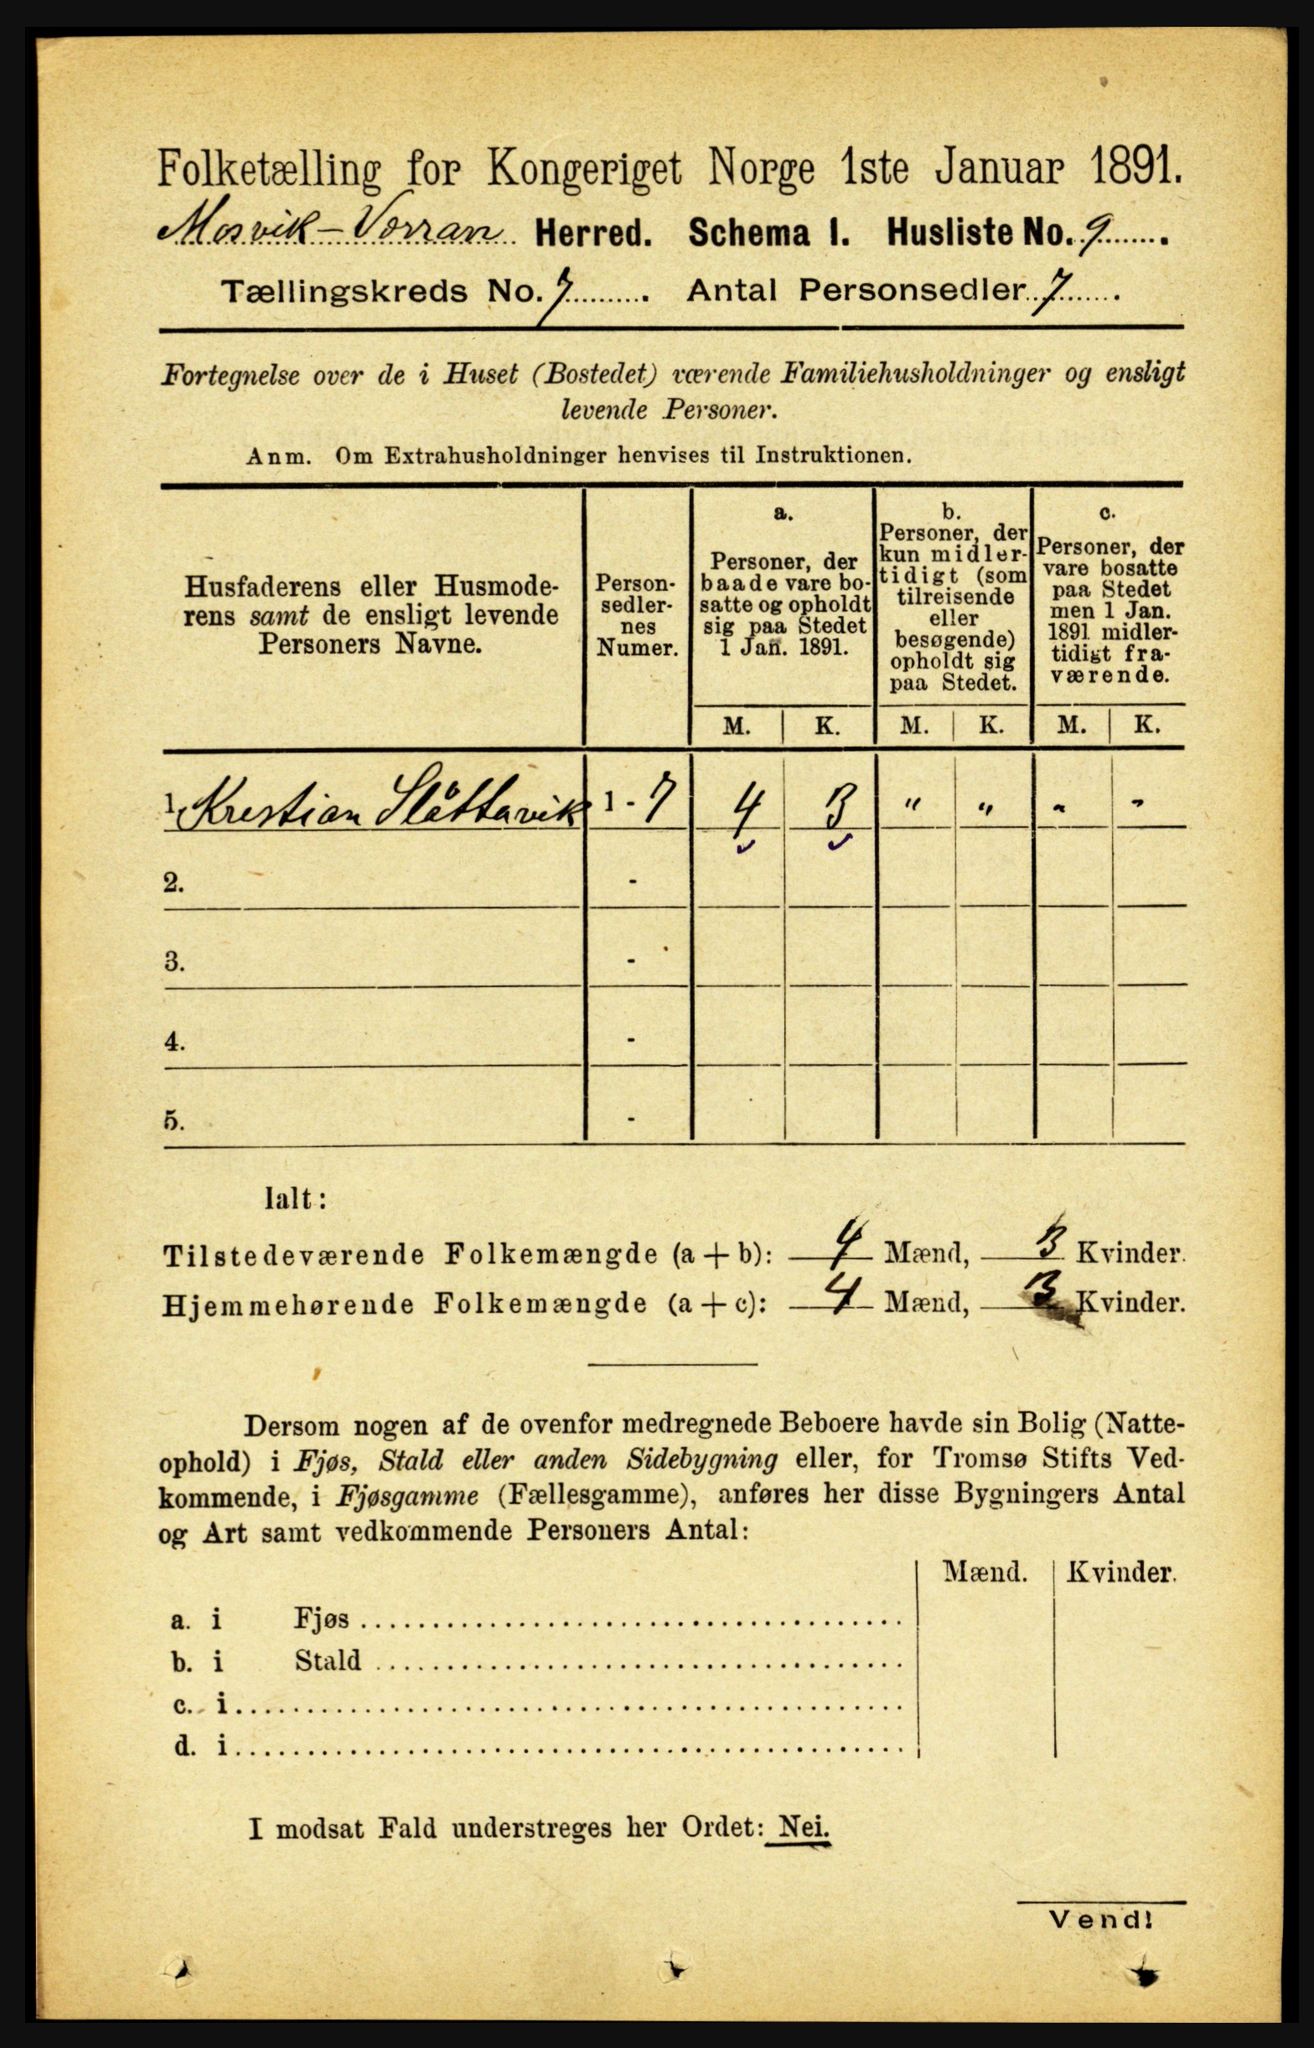 Folketælling for Kongeriget Norge 1ste Januar 1891.
Mosvik-Verran Herred. Schema I. Husliste No. 9.
Tællingskreds No. 7. Antal Personsedler 7.
Fortegnelse over de i Huset (Bostedet) værende Familiehusholdninger og ensligt
levende Personer.
Anm. Om Extrahusholdninger henvises til Instruktionen.
Husfaderens eller Husmode-
rens samt de ensligt levende
Personers Navne.
Person-
sedler-
nes
Numer.
a.
Personer, der
baade vare bo-
satte og opholdt
sig paa Stedet
1 Jan. 1891.
b.
Personer, der
kun midler-
tidigt (som
tilreisende
eller
besøgende)
opholdt sig
paa Stedet.
c.
Personer, der
vare bosatte
paa Stedet
men 1 Jan.
1891 midler-
tidigt fra-
værende.
M. K. M. K. M. K.
1. Krestian Slåttavik 1 - 7 4 3 " " " "
2. -
3. -
4. -
5. -
Ialt:
Tilstedeværende Folkemængde (a + b): 4 Mænd, 3 Kvinder.
Hjemmehørende Folkemængde (a + c): 4 Mænd, 3 Kvinder.
Dersom nogen af de ovenfor medregnede Beboere havde sin Bolig (Natte-
ophold) i Fjøs, Stald eller anden Sidebygning eller, for Tromsø Stifts Ved-
kommende, i Fjøsgamme (Fællesgamme), anføres her disse Bygningers Antal
og Art samt vedkommende Personers Antal:
Mænd. Kvinder.
a. i Fjøs
b. i Stald
c. i
d. i
I modsat Fald understreges her Ordet: Nei.
Vend!